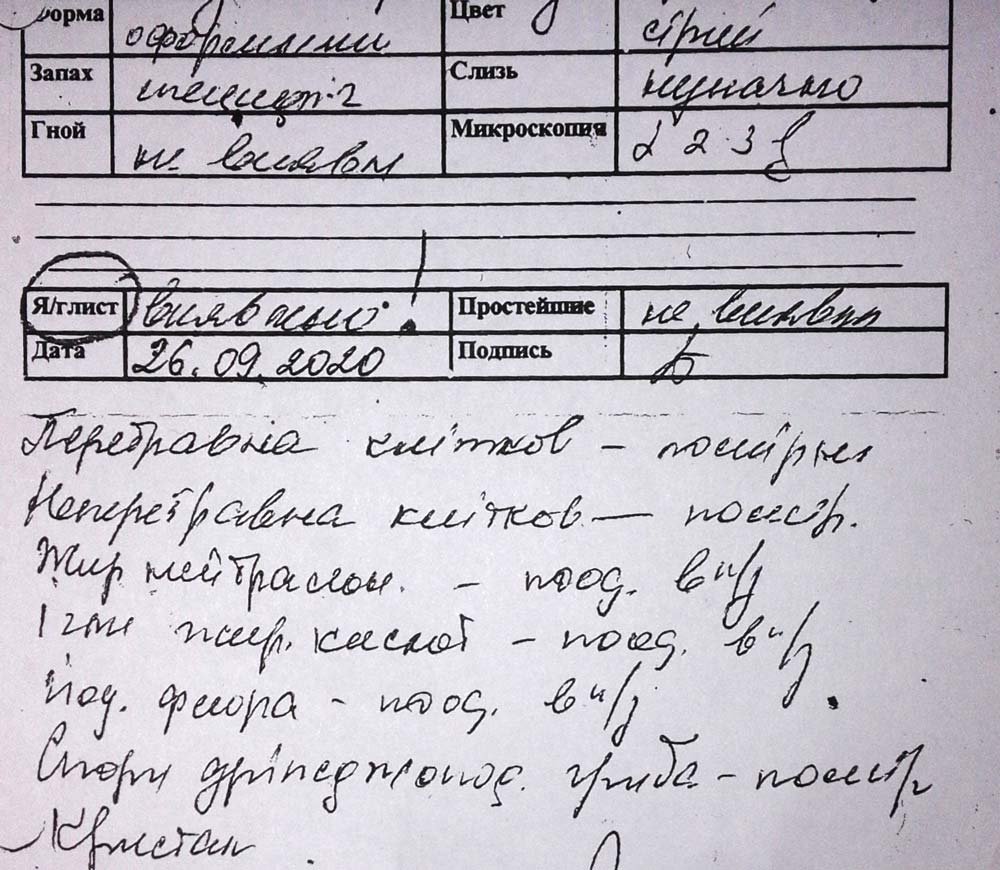 Форма оформлений Цвет сірий
Запах специф-г Слизь незначно
Гной не виявл Микроскопия 1 2 3
Я/глист виявлено! Простейшие не виявлл
Дата 26.09.2020 Подпись
Перетравна клітков – помірн
Неперетравна клітков – помір.
Жир нейтральн. – поод. в п/з
жир. кислот – поод. в п/з
Йод. флора – поод. в п/з
Спори дріжджопод. гриба – помір
Кристал